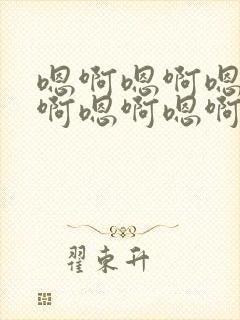 嗯啊嗯啊嗯
啊嗯啊嗯啊
翟束升